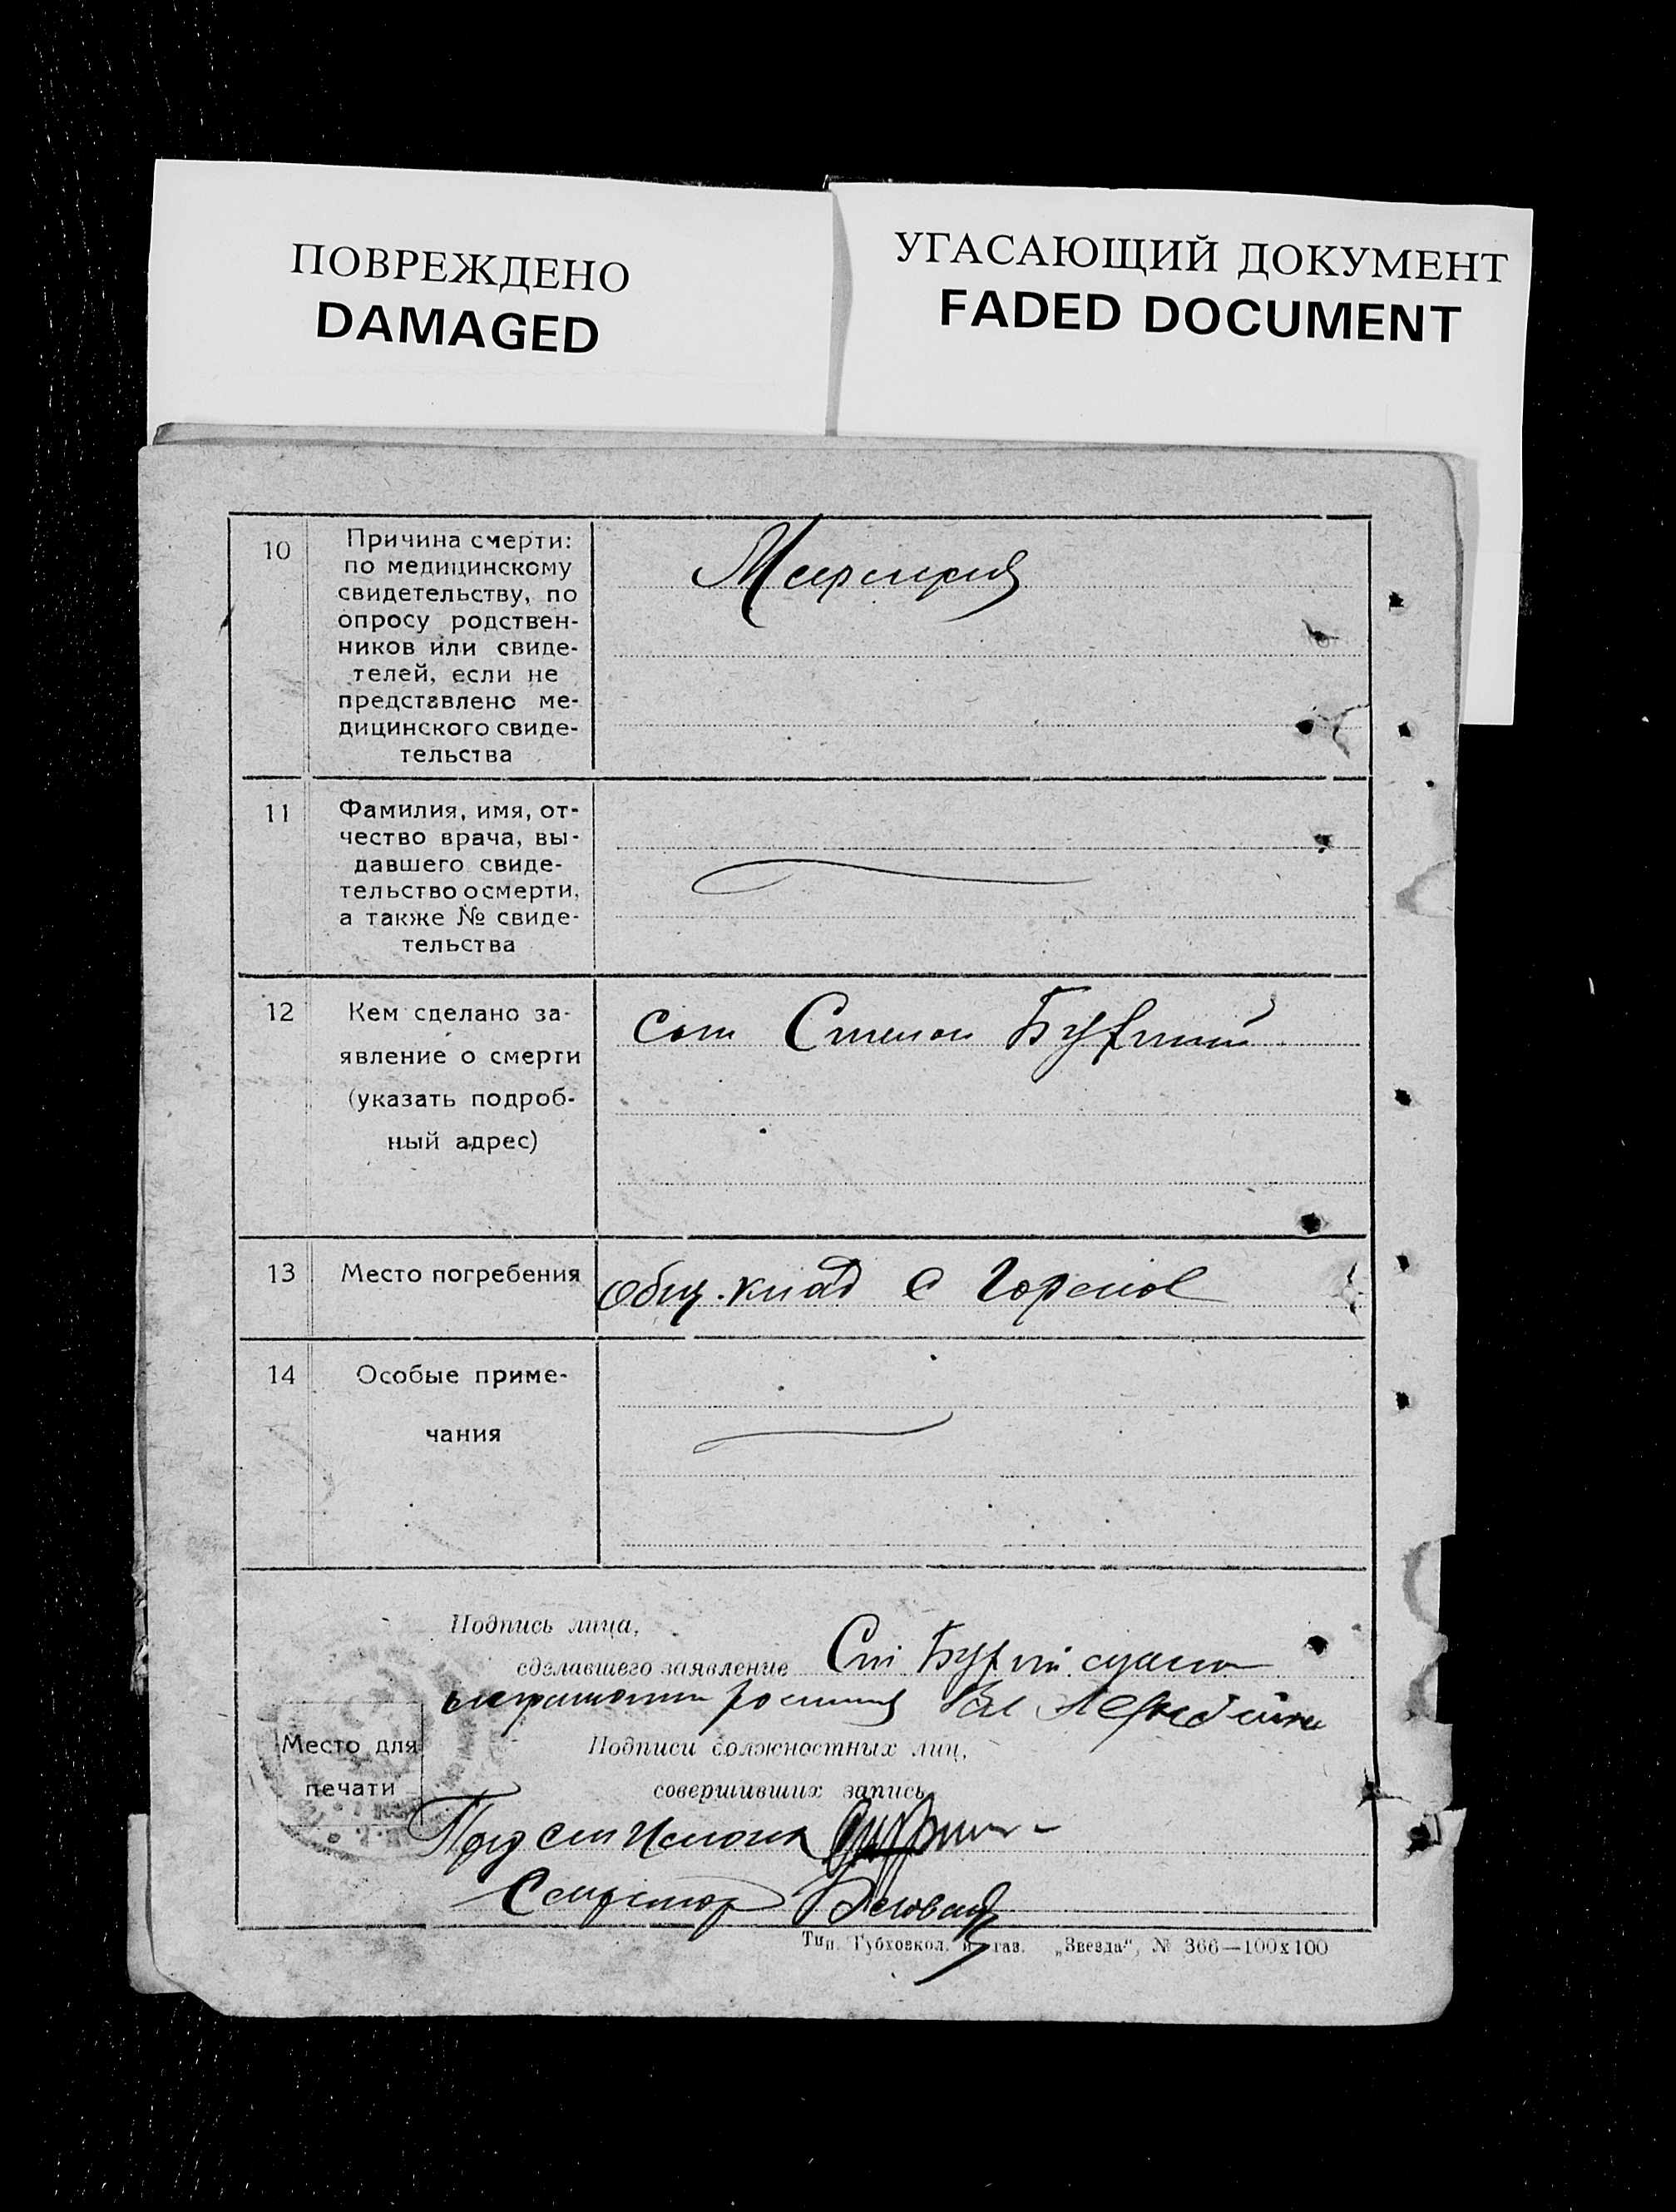 ПОВРЕЖДЕНО
DAMAGED
УГАСАЮЩИЙ ДОКУМЕНТ
FADED DOCUMENT
10
Причина смерти:
по медицинскому
свидетельству, по
опросу родствен-
ников или свиде-
телей, если не
представлено ме-
дицинского свиде-
тельства
Малярия
11
Фамилия, имя, от-
чество врача, вы-
давшего свиде-
тельство о смерти,
а также № свиде-
тельства
12
Кем сделано за-
явление о смерти
(указать подроб-
ный адрес)
Степан
13
Место погребения
Общ. клад с
14
Особые приме-
чания
Подпись лица,
сделавшего заявление
Место для
печати
Подписи должностных лиц,
совершивших запись
Пред
Секретар
Тип. Губхозкол. и газ. „Звезда“, № 366—100х100